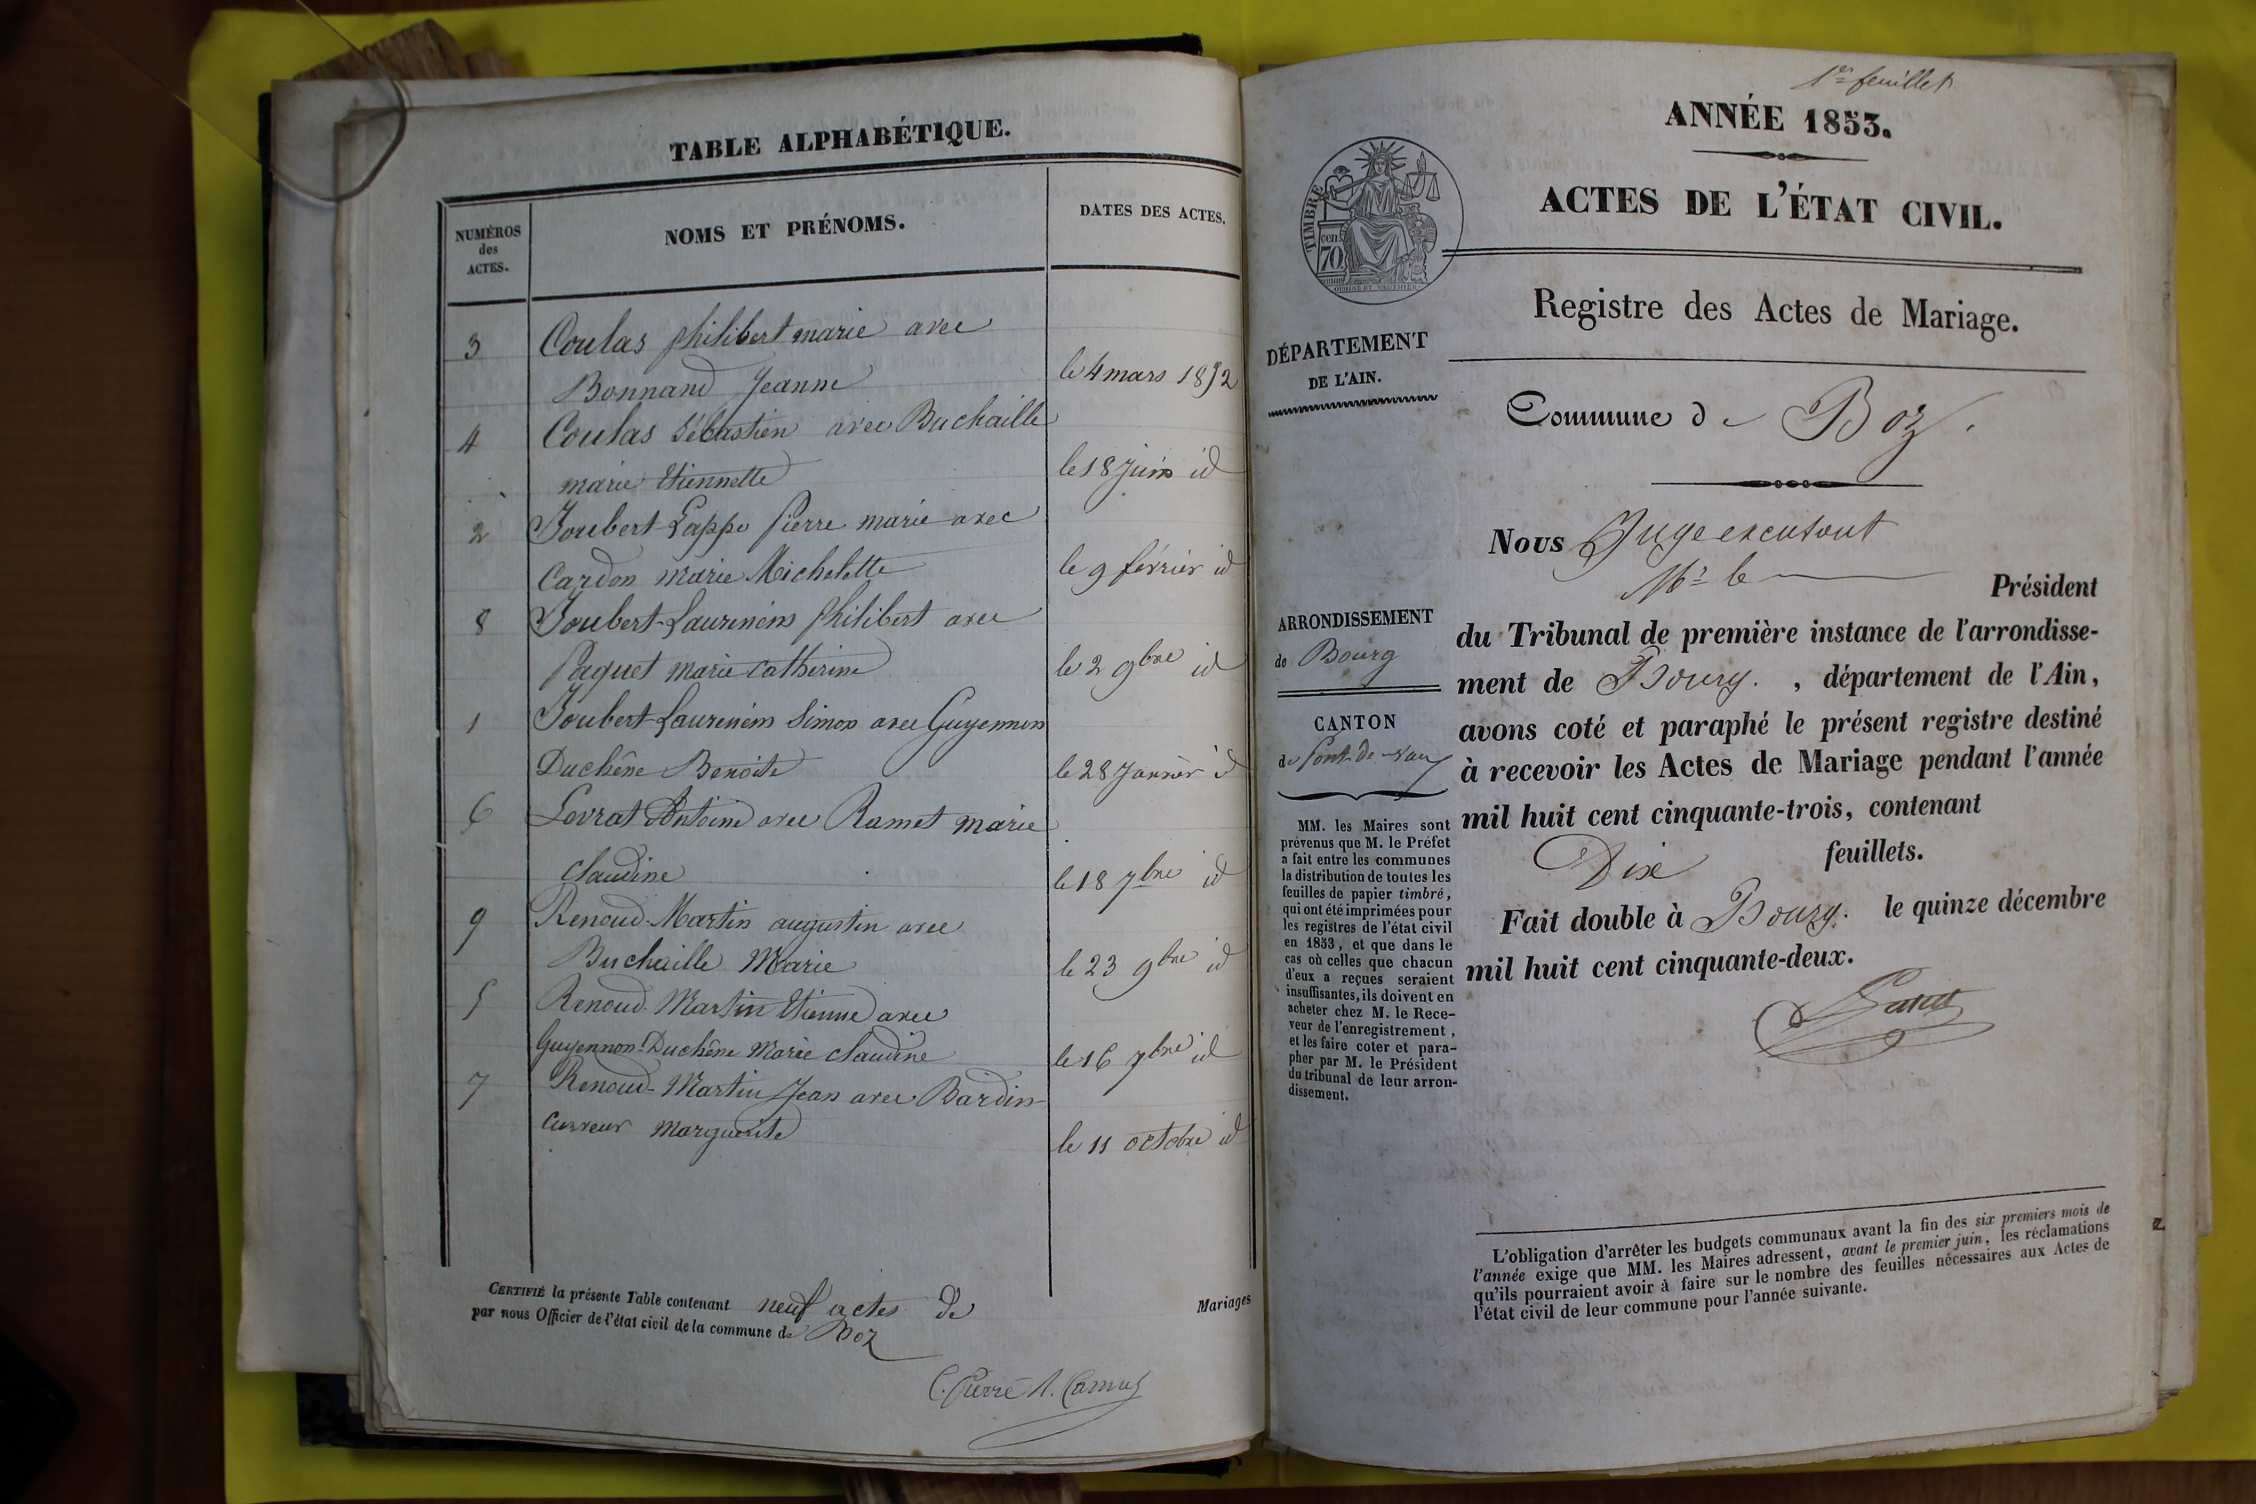 TABLE ALPHABÉTIQUE.
NUMÉROS
des
ACTES.
NOMS ET PRÉNOMS.
DATES DES ACTES.
3 Coulas philibert marie avec
Bonnand Jeanne le 4 mars 1852
4 Coulas Sébastien avec Buchaille
marie Etiennette le 18 Juin id
2 Joubert Lappe pierre marie avec
Cardon marie Michelette le 9 février id
8 Joubert-Laurencin philibert avec
Paquet marie catherine le 2 9bre id
1 Joubert-Laurencin Simon avec Guyennon
Duchêne Benoite le 28 Janvier id
6 Lovrat Antoine avec Ramet marie
claudine le 18 7bre id
9 Renoud-Martin augustin avec
Buchaille Marie le 23 9bre id
5 Renoud-Martin Etienne avec
Guyennon-Duchêne Marie claudine le 16 7bre id
7 Renoud-Martin Jean avec Bardin-
curveur marguerite le 11 octobre id
CERTIFIÉ la présente Table contenant neuf actes de Mariages
par nous Officier de l'état civil de la commune de Boz
1er feuillet
ANNÉE 1853.
ACTES DE L'ÉTAT CIVIL.
TIMBRE
cen.
70
Registre des Actes de Mariage.
DÉPARTEMENT
DE L'AIN.
Commune de Boz.
Nous Juge excutant
Mr le Président
du Tribunal de première instance de l'arrondisse-
ment de Bourg. , département de l'Ain,
avons coté et paraphé le présent registre destiné
à recevoir les Actes de Mariage pendant l'année
mil huit cent cinquante-trois, contenant
Dix feuillets.
Fait double à Bourg. le quinze décembre
mil huit cent cinquante-deux.
ARRONDISSEMENT
de Bourg
CANTON
de Pont-de-vaux
MM. les Maires sont
prévenus que M. le Préfet
a fait entre les communes
la distribution de toutes les
feuilles de papier timbré,
qui ont été imprimées pour
les registres de l'état civil
en 1853, et que dans le
cas où celles que chacun
d'eux a reçues seraient
insuffisantes, ils doivent en
acheter chez M. le Rece-
veur de l'enregistrement,
et les faire coter et para-
pher par M. le Président
du tribunal de leur arron-
dissement.
L'obligation d'arrêter les budgets communaux avant la fin des six premiers mois de
l'année exige que MM. les Maires adressent, avant le premier juin, les réclamations
qu'ils pourraient avoir à faire sur le nombre des feuilles nécessaires aux Actes de
l'état civil de leur commune pour l'année suivante.